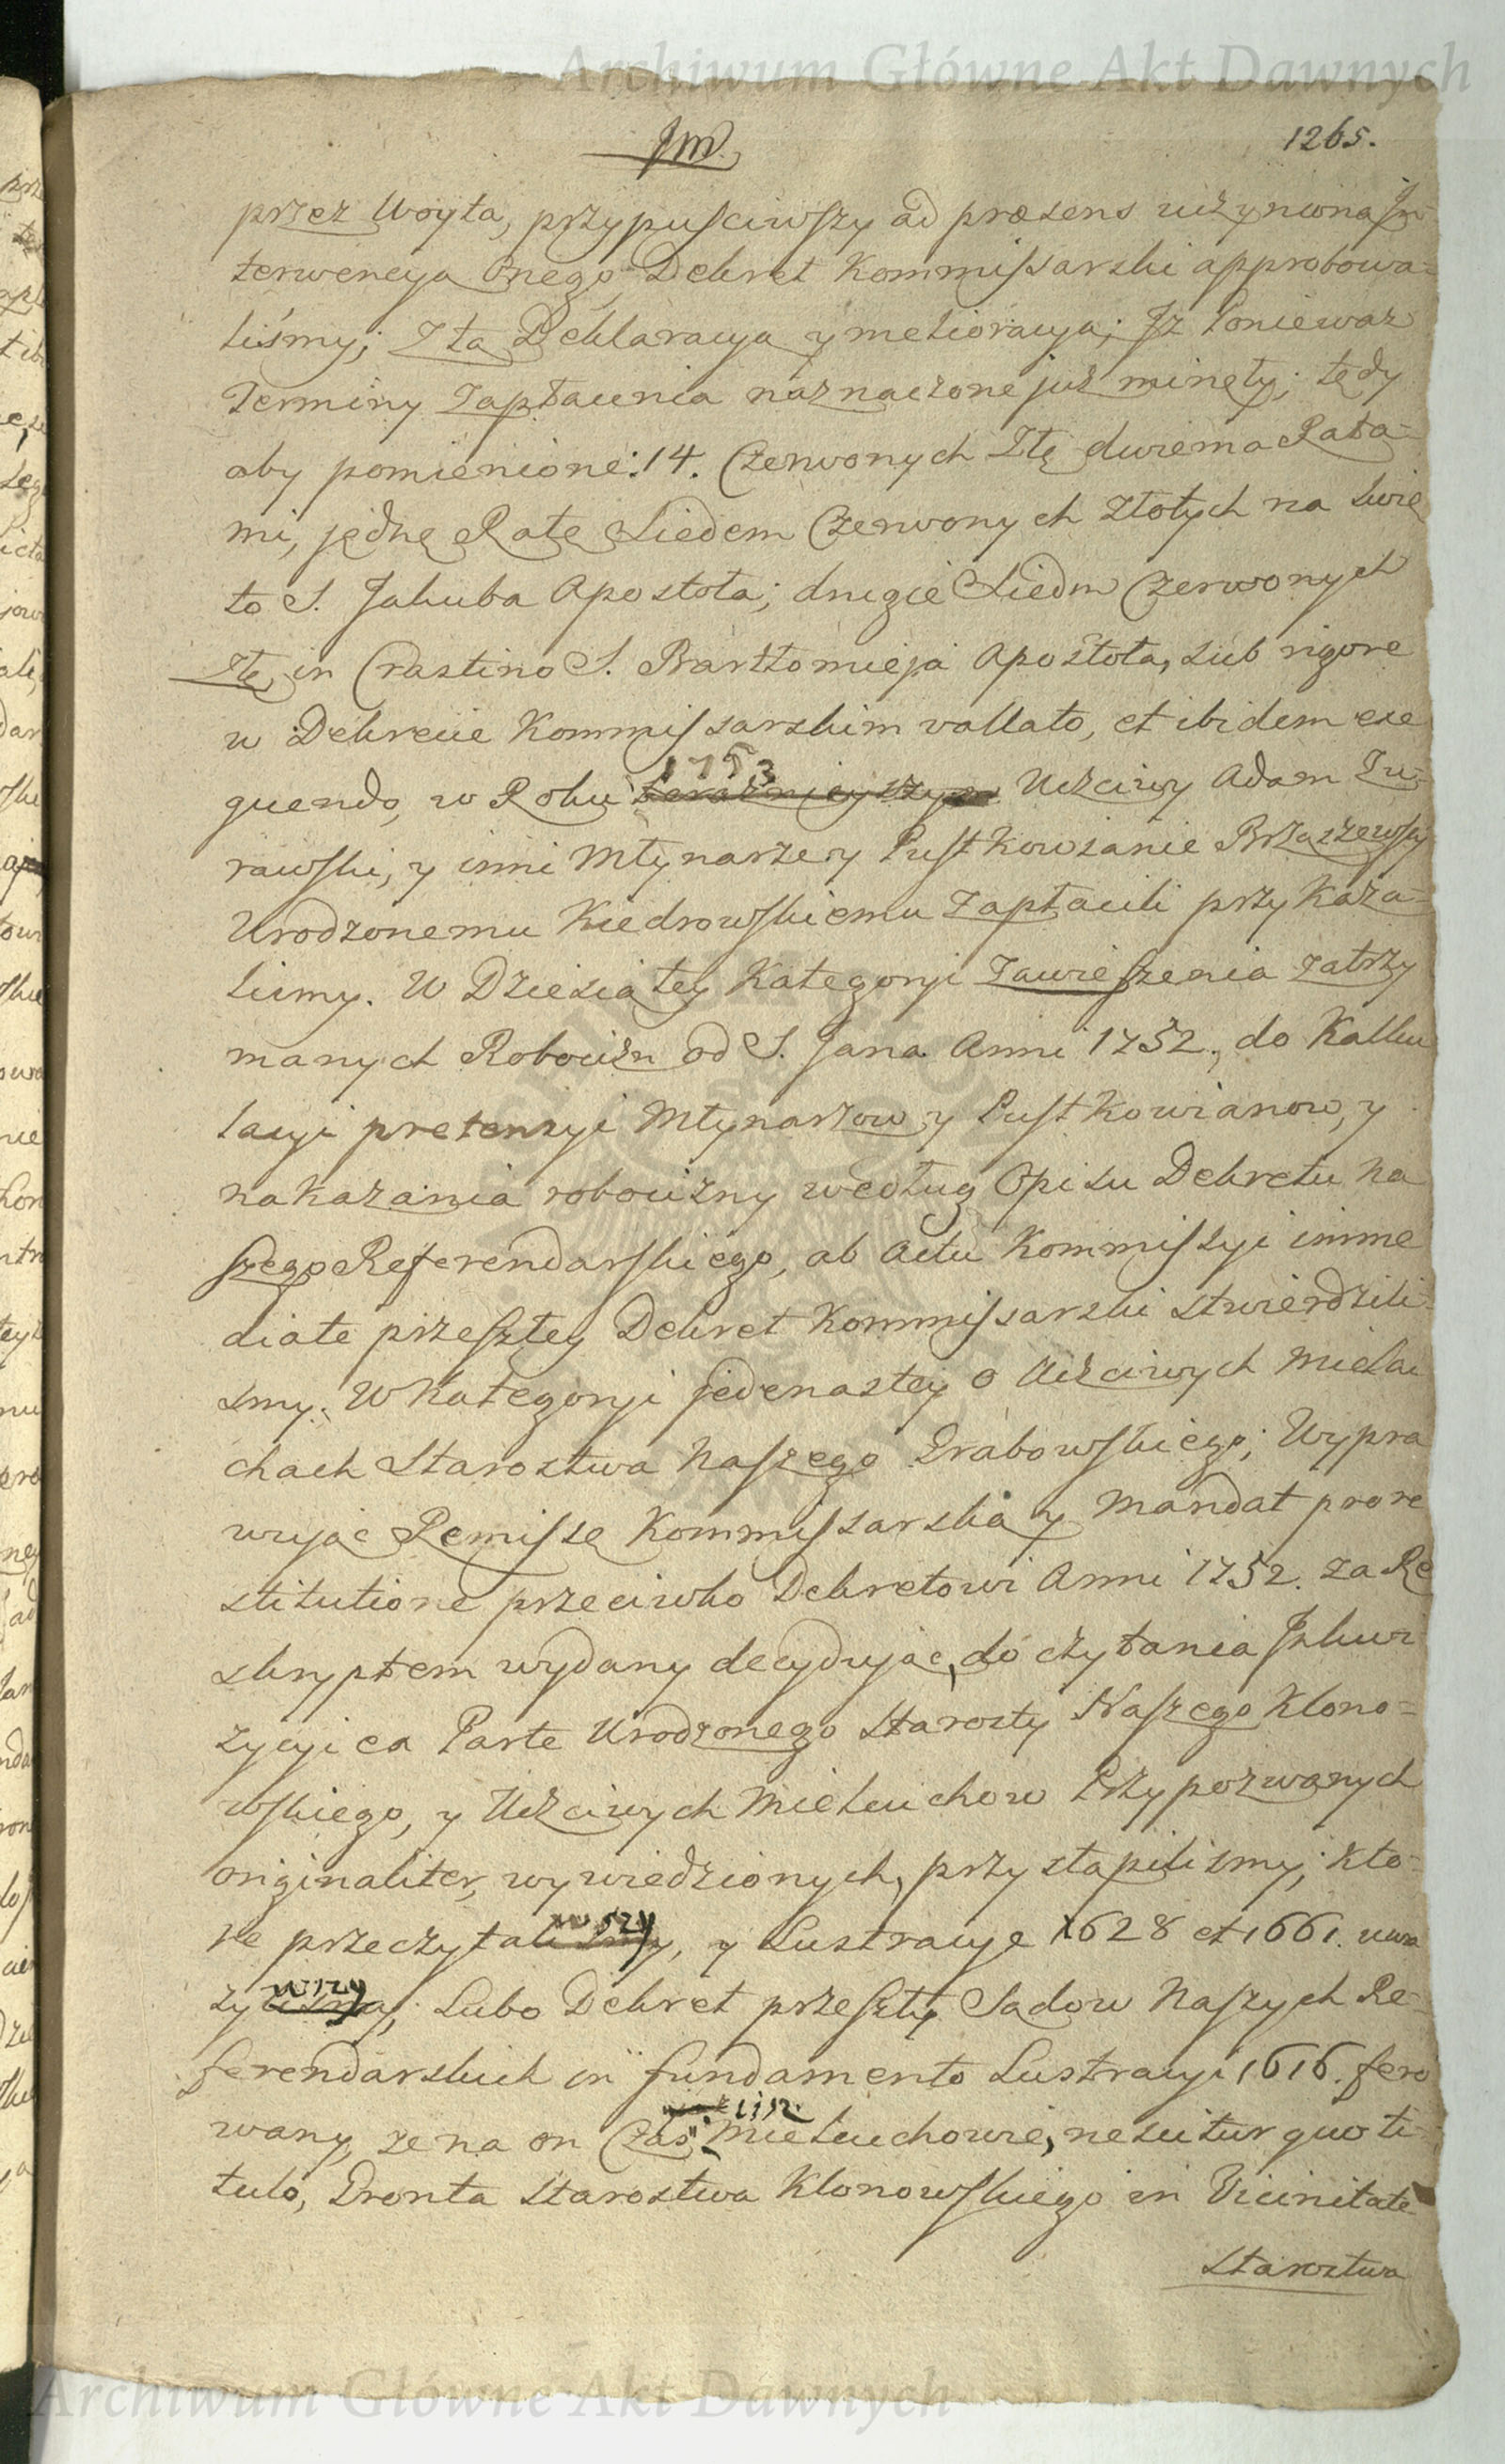 Archiwum Główne Akt Dawnych
1265.
przez Woyta, przypuściwszy ad præsens uczyniona In-
terwencya Onego Dekret Kommissarski approbowa-
liśmy; Z ta Deklaracya y melioracya; Jż Ponieważ
Terminy Zapłacenia naznaczone już minęły; tędy
aby pomienione: 14. Czerwonych Złł dwiema Rata-
mi, jednę Ratę Siedem Czerwonych Złotych na Świę
to S. Jakuba Apostoła; drugie Siedm Czerwonych
Złł, in Crastino S. Bartłomieja Apostoła, sub rigore
w Dekrecie Kommissarskim vallato, et ibidem exe
quendo, w Roku 1753 Uczciwy Adam Zu-
rawski, y inni Młynarze y Pustkowianie Brzaszewscy
Urodzonemu Kiedrowskiemu Zapłacili przykaza-
limy. W Dziesiątey Kategoryi Zawieszenia zatrzy
manych Robocizn od S. Jana Anni 1752, do Kalku
lacyi pretensyi Młynarzow y Pustkowianow, y
nakazania robocizny według Opisu Dekretu Na
szego Referendarskiego, ab actu Kommissyi imme
diate przeszłey Dekret Kommissarski stwierdzili
smy. W Kategoryi jedenastey o Uczciwych Mielcu
chach Starostwa Naszego Grabowskiego; Wypra
wując Remissę Kommissarską y Mandat pro re
stitutione przeciwko Dekretowi Anni 1752. za Re
skryptem wydany decydując, do czytania Inkwi
zycyi ex Parte Urodzonego Starosty Naszego Klono-
wskiego, y Uczciwych Mielcuchow Przypozwanych
originaliter, wywiedzionych, przystąpilismy; kto-
re przeczytawszy, y Lustracye 1628 et 1661. uwa
żywszy, Lubo Dekret przeszły Sądow Naszych Re-
ferendarskich in fundamento Lustracyi 1616. fero
wany, że na on Czas Mielcuchowie, nescitur quo ti-
tulo, Gronta Starostwa Klonowskiego in Vicinitate
Starostwa
Archiwum Główne Akt Dawnych